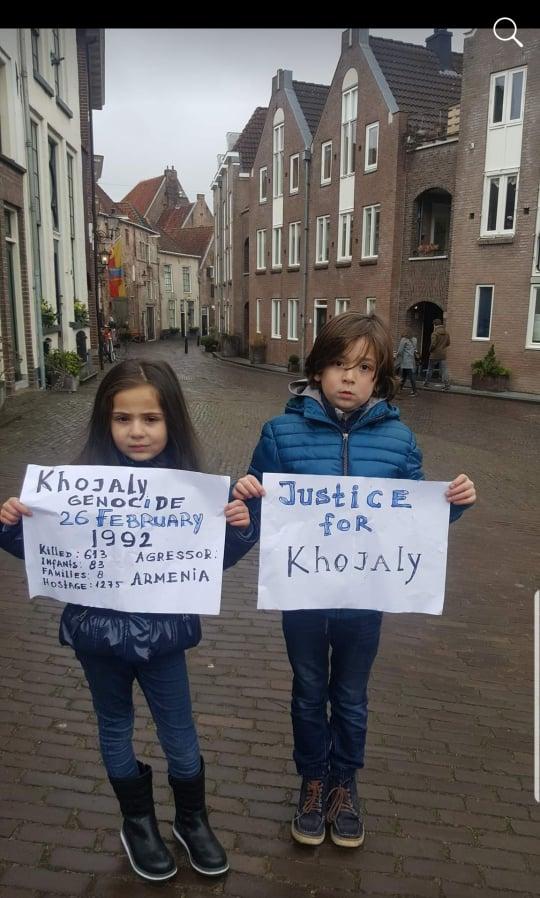 Khojaly
GENOCIDE
26 FEBRUARY
1992
Killed: 613
Infants: 83
Families: 8
Hostage: 1275
AGRESSOR:
ARMENIA
Justice
for
Khojaly